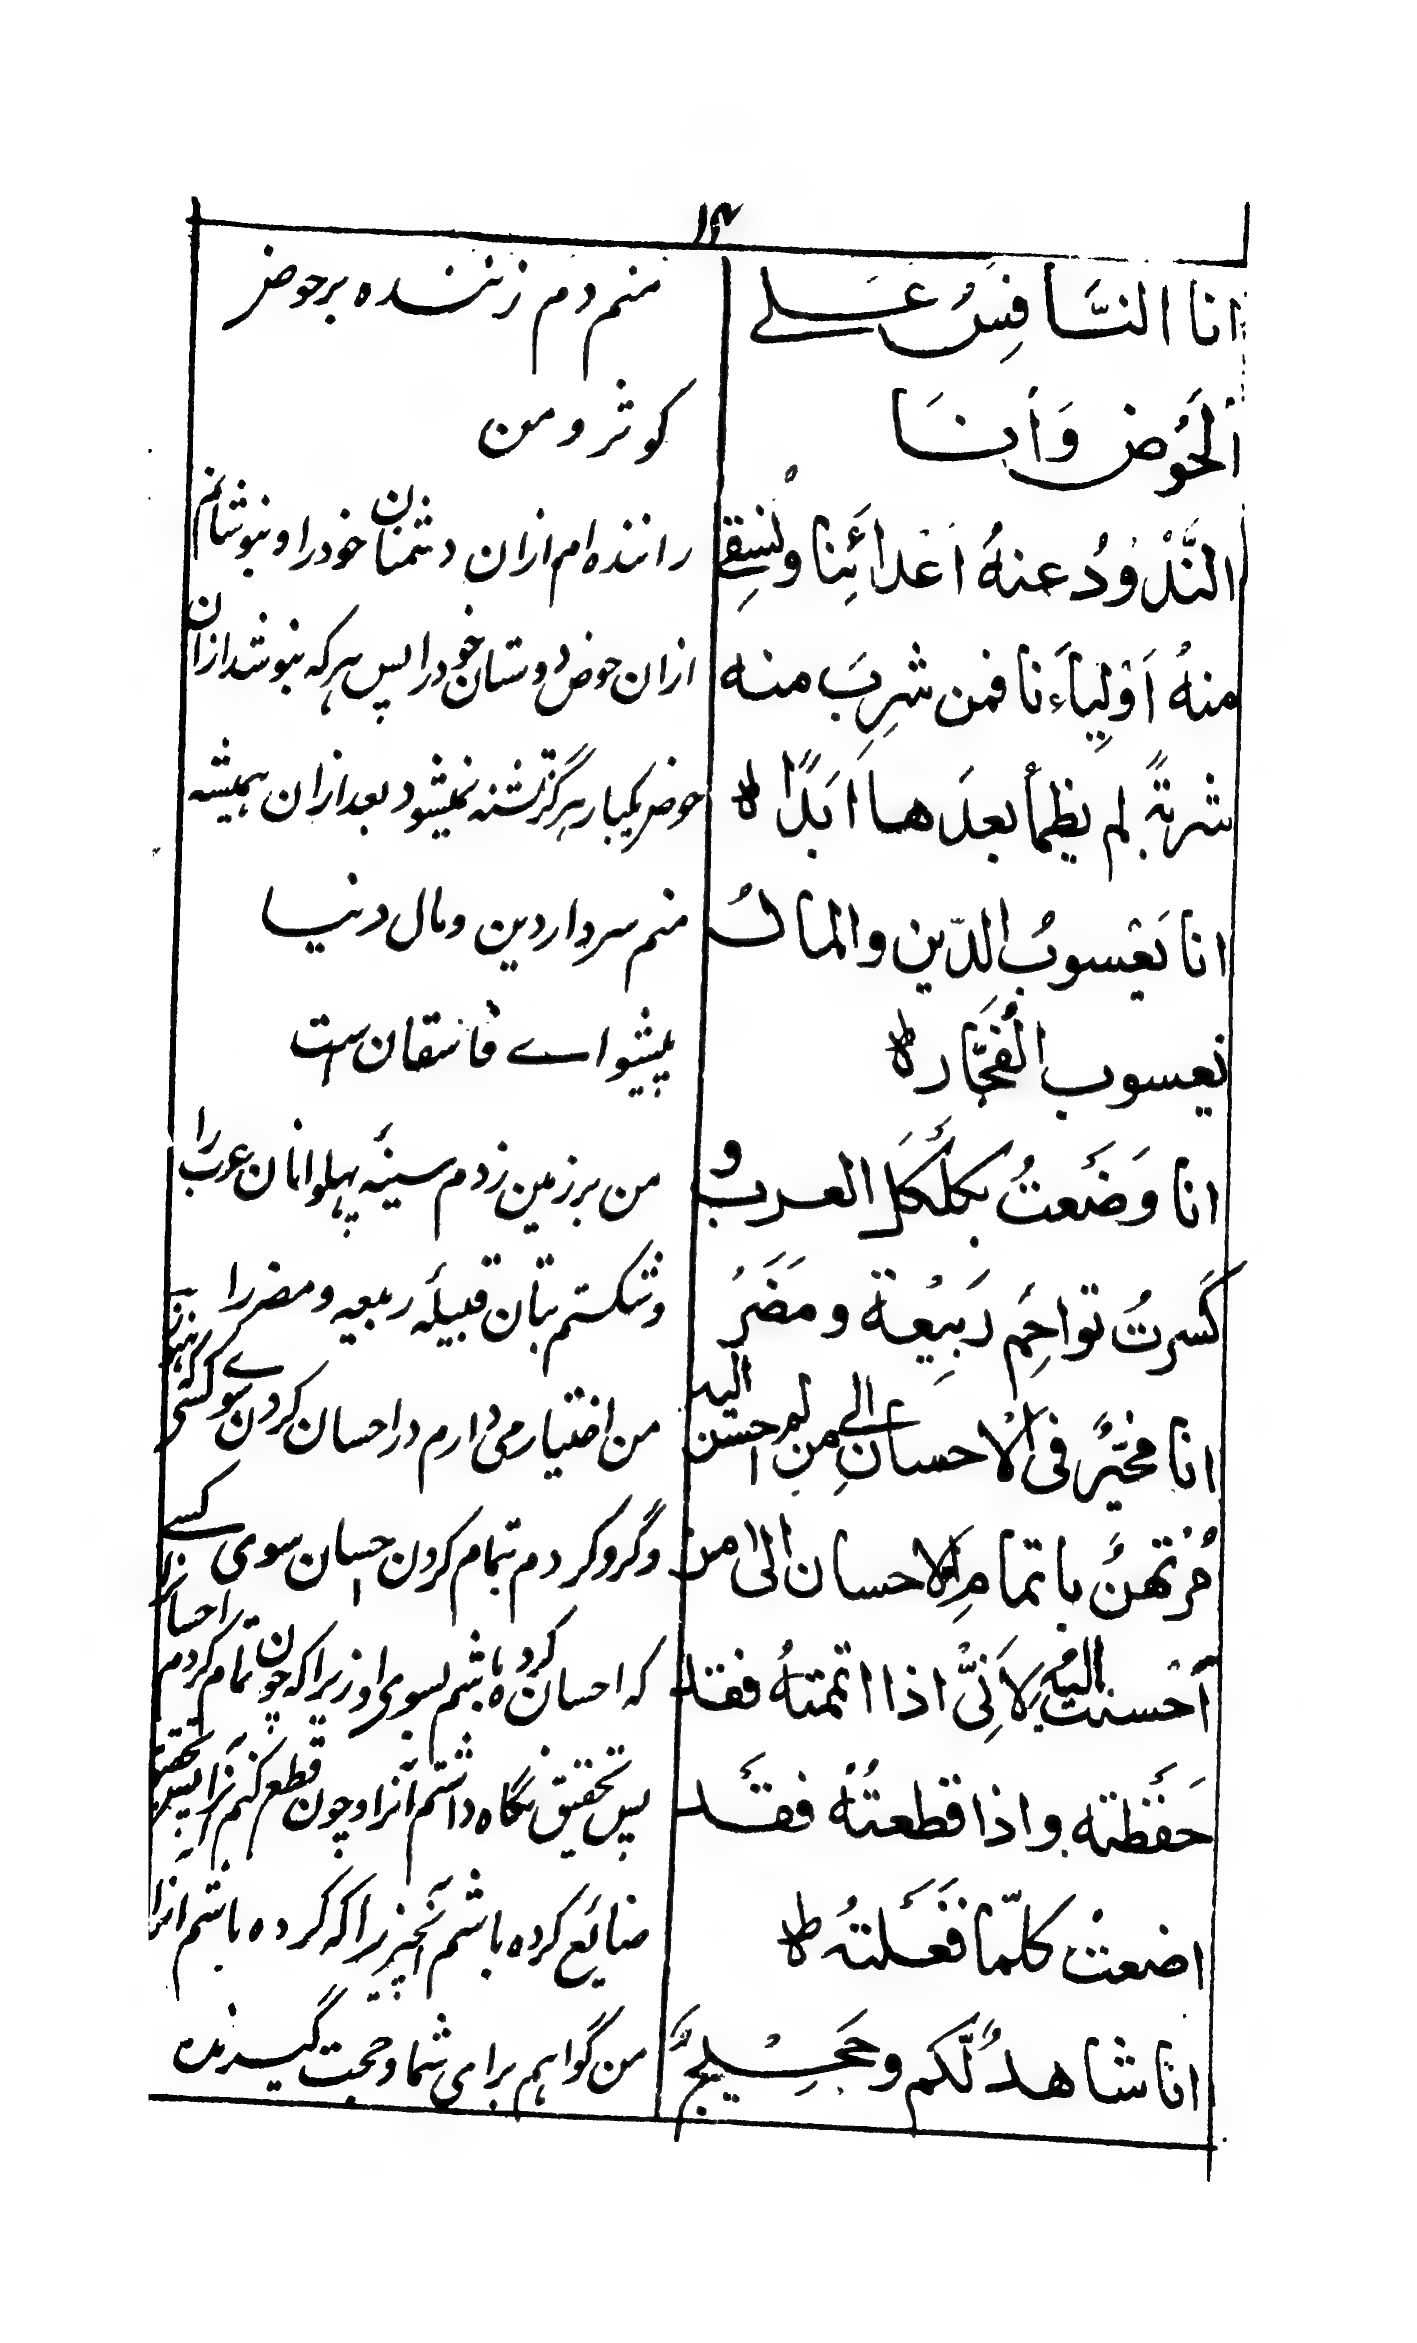 ۱۴
انا النَّافِسُ عَلے
منم دم زننده بر حوض
اَلحَوُض وَأنَا
کوثر و من
النَّذْوُدُ عنهُ اَعْدأَئِنا ونُسقِے
راننده ام ازان دشمنان خود را و بنوشانم
منهُ اَوْلِياَءنا فمن شرِبَ منه
ازان حوض دوستان خود را پس هر که بنوشد ازان
شربةً لم يظمأ بعدَها اَبَدًا ط
حوض یکبار هرگز تشنه نمیشود بعد ازان همیشه
انا يَعْسوبُ الدّين والمالُ
منم سردار دین و مال دنیا
يعسوب الُفَجَّار ط
پیشواے فاسقان است
انا وَضَعتُ بكلكَلَ العرب و
من بر زمین زدم سینۀ پهلوانان عرب را
كَسرتُ نواحِمَ رَبِيْعة ومَضَرُ
و شکستم بتان قبیلۀ ربیعه و مضر را
انا مخيّرٌ فى الْاحسان الى من لم احسن اليه
من اختیار می دارم در احسان کردن سوے کسی که
مُرْتهنٌ باتمامِ الاحسان الى من
و گرو کردم بتمام کردن احسان سوی کسے
أحْسنت اليه لِاَنِّىْ اذا اتممتهُ فقد
که احسان کرده باشم بسوی او زیرا که چون تمام کردم احسان را
حَفَظته واذا قطعتُهُ فقَد
پس تحقیق نگاه داشتم آنرا و چون قطع کنم آنرا پس تحقیق
اضعتْ كلّما فَعَلتهُ ط
ضایع کرده باشم آنچیز را که کرده باشم آنرا
انا شاهدٌ لّكم وحَجِيْجٌ
من گواهم برای شما و حجت گیرنده